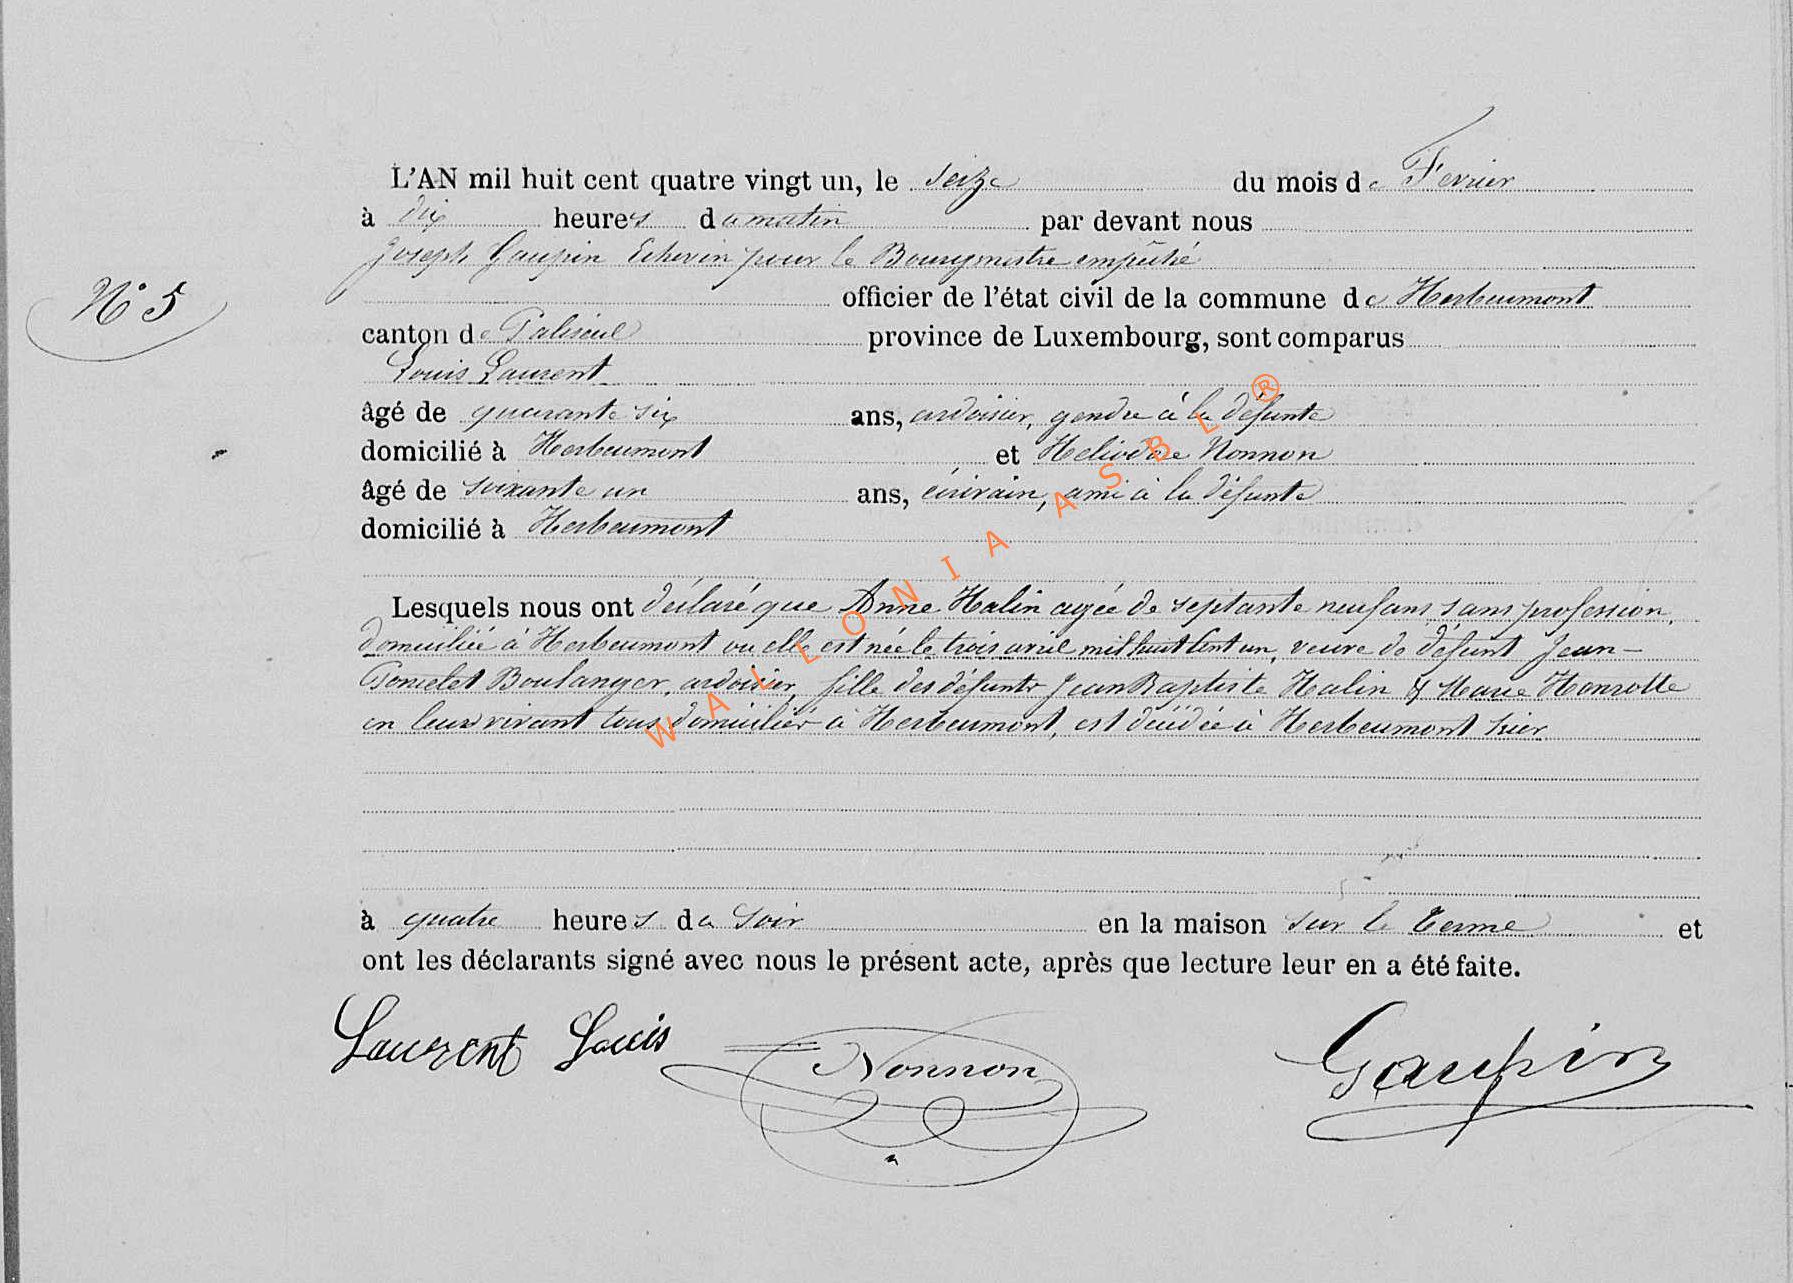 L'AN mil huit cent quatre vingt un, le seize du mois de Fevrier
à dix heures du matin par devant nous
Joseph Gaupin Echevin pour le Bourgmestre empêché
N° 5
officier de l'état civil de la commune de Herbeumont
canton de Paliseul province de Luxembourg, sont comparus
Louis Laurent
âgé de quarante six ans, ardoisier, gendre à la défunte
domicilié à Herbeumont et Heliodore Nonnon
âgé de soixante un ans, écrivain, ami à la défunte
domicilié à Herbeumont
Lesquels nous ont déclaré que Anne Halin agée de septante neuf ans, sans profession,
domiciliée à Herbeumont ou elle est née le trois avril mil huit Cent un, veuve de défunt Jean-
Poncelet Boulanger, ardoisier, fille des défunts Jean Baptiste Halin & Marie Hansotte
en leur vivant tous domiciliés à Herbeumont, est décédée à Herbeumont hier
à quatre heures du soir en la maison sur le Terme et
ont les déclarants signé avec nous le présent acte, après que lecture leur en a été faite.
Laurent Louis Nonnon Gaupin
WALLONIA ASBL ®